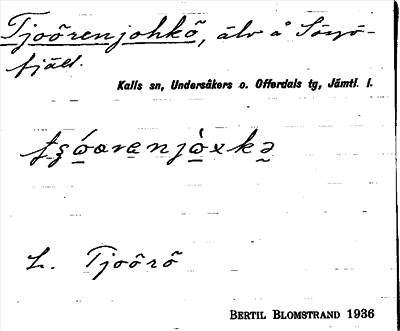 Tjoôrenjohkô, älv å Sösjö-
fjäll.
Kalls sn, Undersåkers o. Offerdals tg, Jämtl. l.
L. Tjoôrô
BERTIL BLOMSTRAND 1936